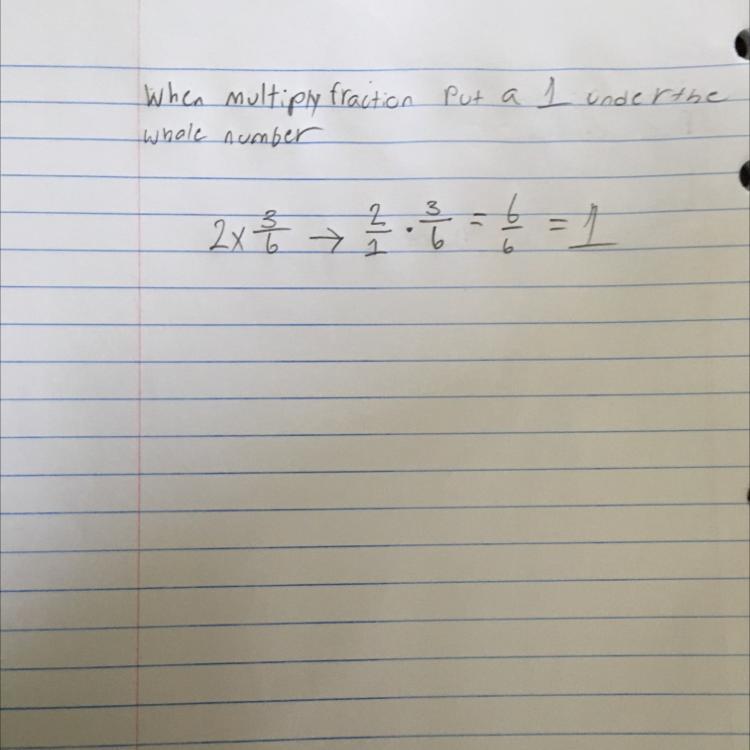 When multiply fraction Put a 1 under the
whole number
2 x 3/6 → 2/1 · 3/6 = 6/6 = 1